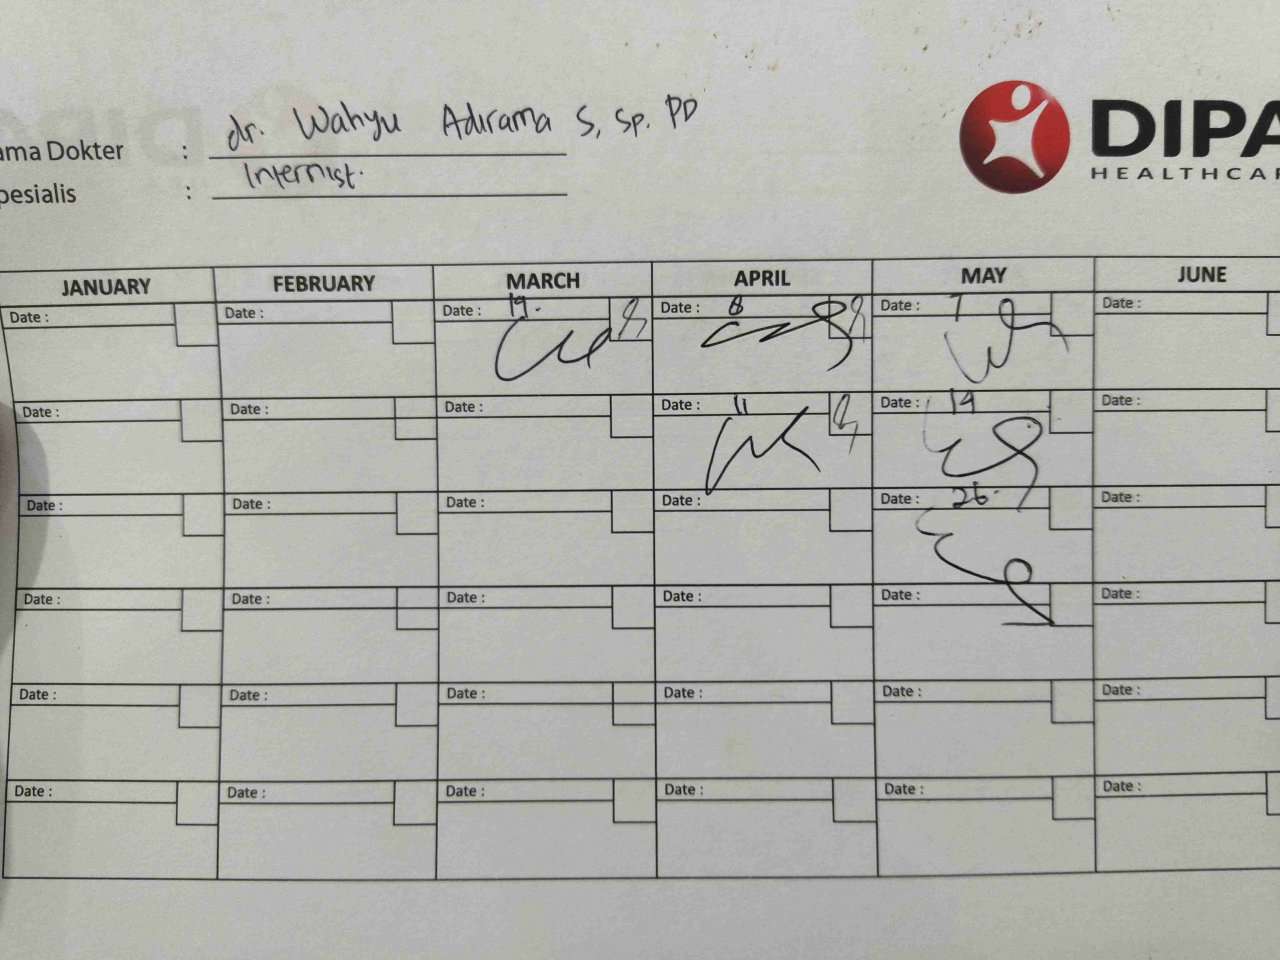 dr. Wahyu Adirama S, Sp. PD
ama Dokter :
Internist.
pesialis :
DIPA
HEALTHCAR
JANUARY FEBRUARY MARCH APRIL MAY JUNE
Date : Date : Date : 19. Date : 8 Date : 7 Date :
Date : Date : Date : Date : 11 Date : 19 Date :
Date : Date : Date : Date : Date : 26. Date :
Date : Date : Date : Date : Date : Date :
Date : Date : Date : Date : Date : Date :
Date : Date : Date : Date : Date : Date :